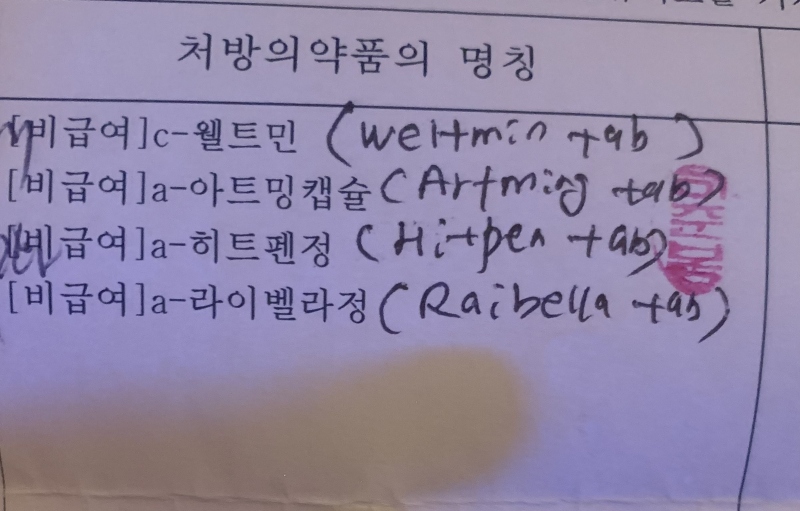 처방의약품의 명칭
[비급여]c-웰트민 (Weltmin tab)
[비급여]a-아트밍캡슐 (Artming tab)
[비급여]a-히트펜정 (Hitpen tab)
[비급여]a-라이벨라정 (Raibella tab)